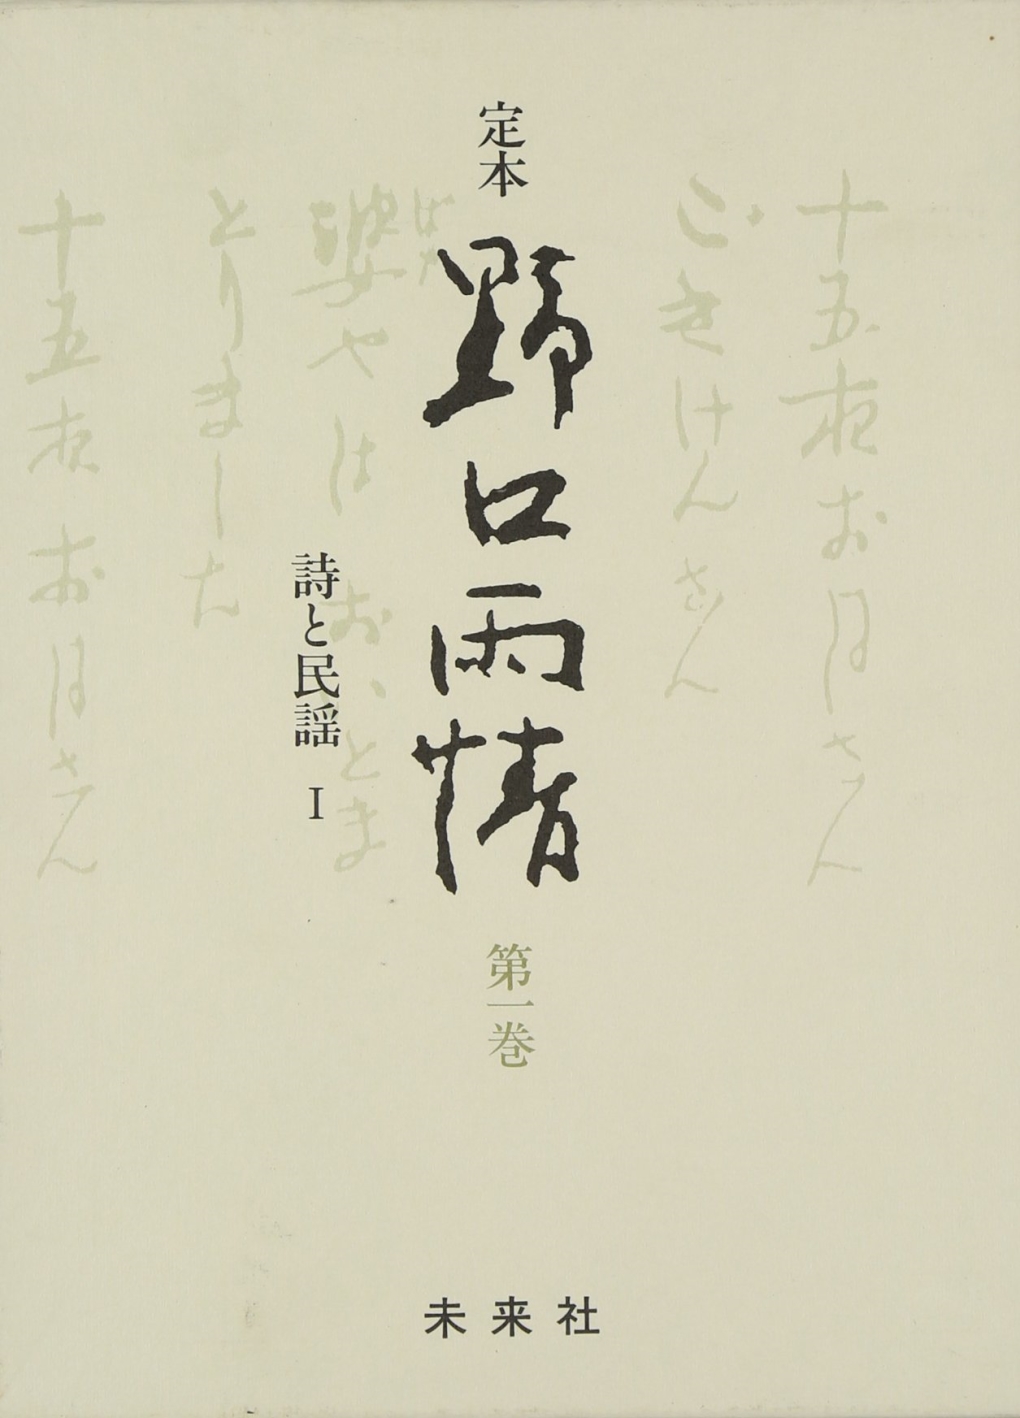 定本
野口雨情
第一巻
詩と民謡 I
十五夜お月さん
ごきげんさん
ばあ
婆やは お、とま
とりました
十五夜お月さん
未来社